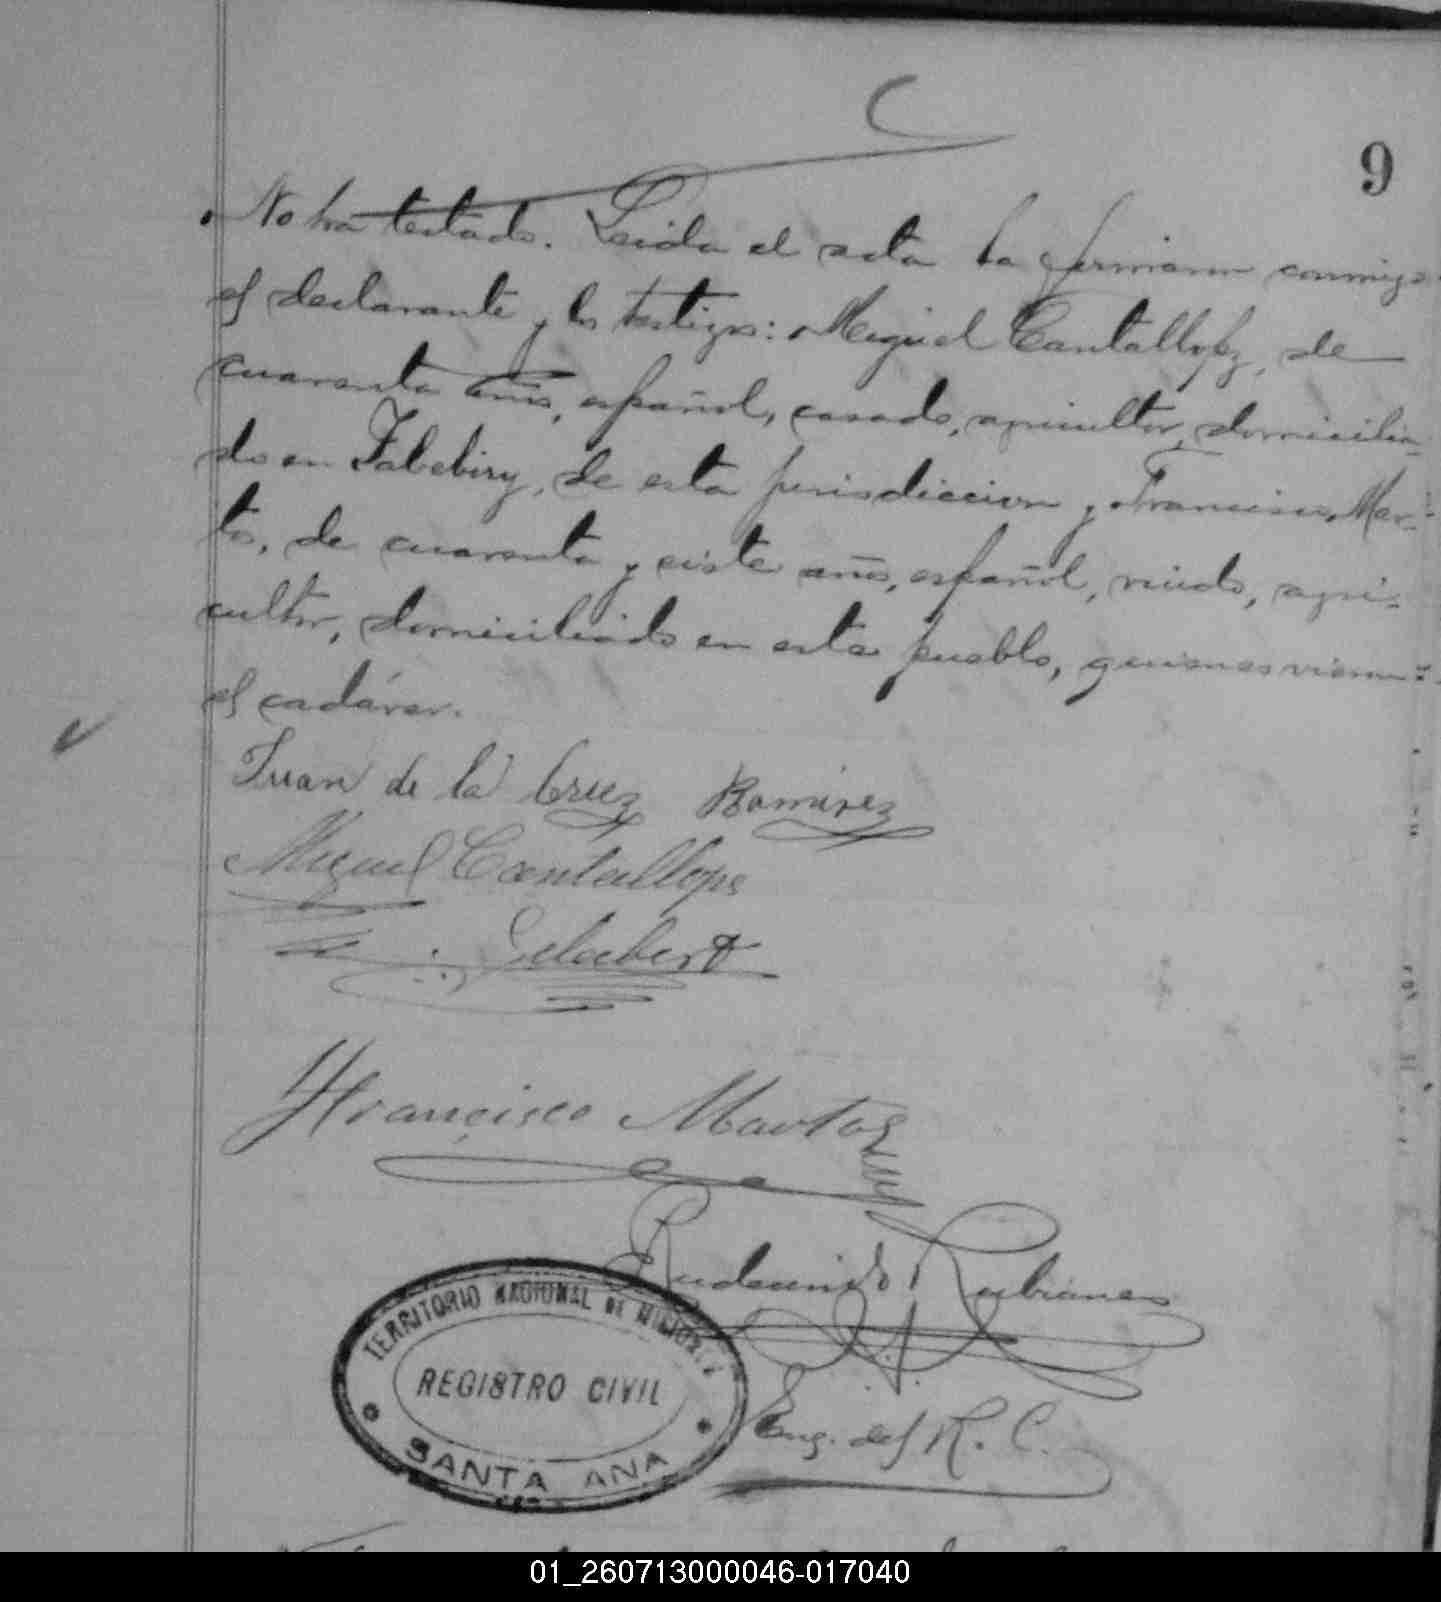 9
No ha testado. Leida el acta la firman conmigo
el declarante y los testigos: Miguel Cantallopz, de
cuarenta años, español, casado, agricultor, domicilia-
do en Yabebiry, de esta jurisdiccion y Francisco Mar-
tos, de cuarenta y siete años, español, viudo, agri-
cultor, domiciliado en este pueblo, quienes vieron
el cadáver.
Juan de la Cruz Ramirez
Miguel Cantallops
Gelabert
Francisco Martos
Rudecindo Rubianes
Enc. del R. C.
TERRITORIO NACIONAL DE MISIONES
REGISTRO CIVIL
SANTA ANA
01_260713000046-017040